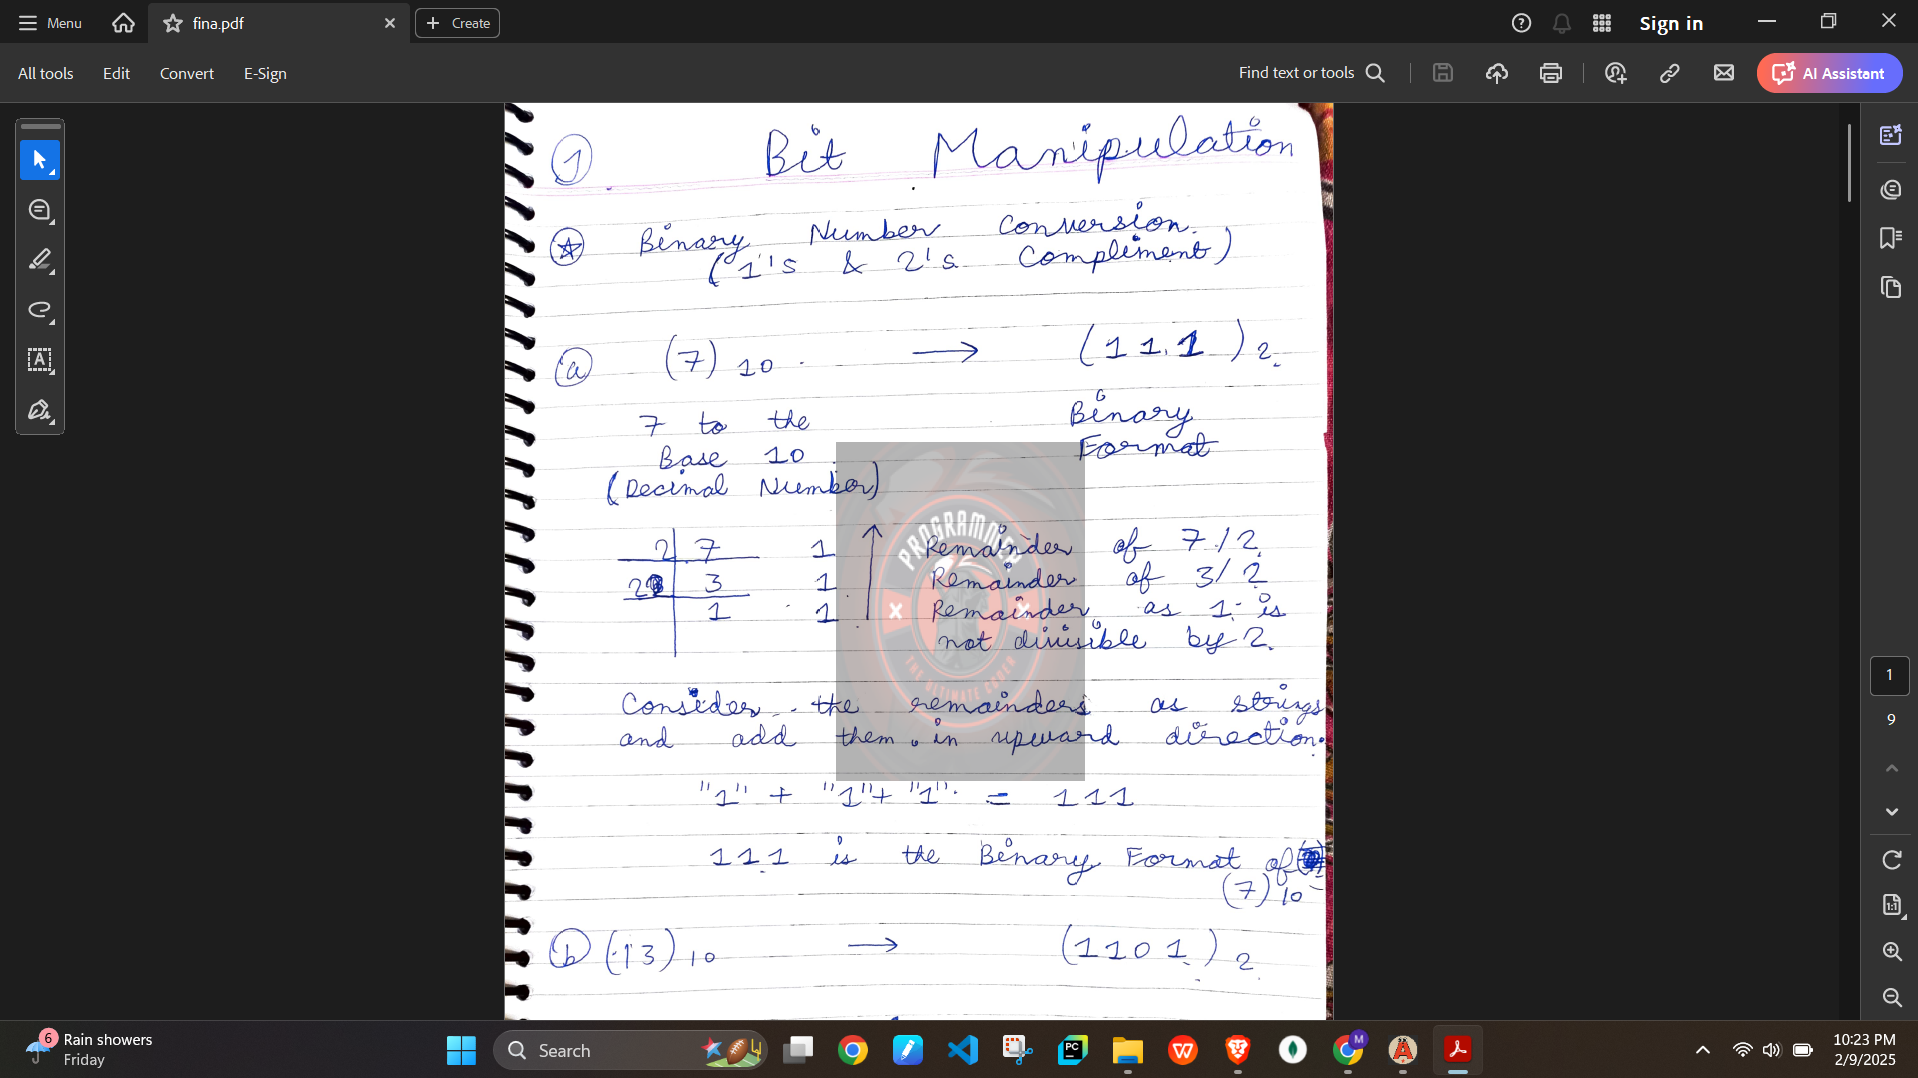 Menu
fina.pdf
Create
Sign in
All tools
Edit
Convert
E-Sign
Find text or tools
AI Assistant
1 Bit Manipulation
Binary Number Conversion.
(1's & 2's Compliment)
a (7) 10 → (111) 2
7 to the Binary
Base 10 Format
(Decimal Number)
2 7 1 Remainder of 7/2
2 3 1 Remainder of 3/2
1 1 Remainder as 1 is
not divisible by 2.
PROGRAMMER
THE ULTIMATE CODER
Consider the remainders as strings
and add them in upward direction.
"1" + "1" + "1" = 111
111 is the Binary Format of
(7) 10
b (13) 10 → (1101) 2
A
1
9
1:1
6
Rain showers
Friday
Search
PC
W
M
A
10:23 PM
2/9/2025